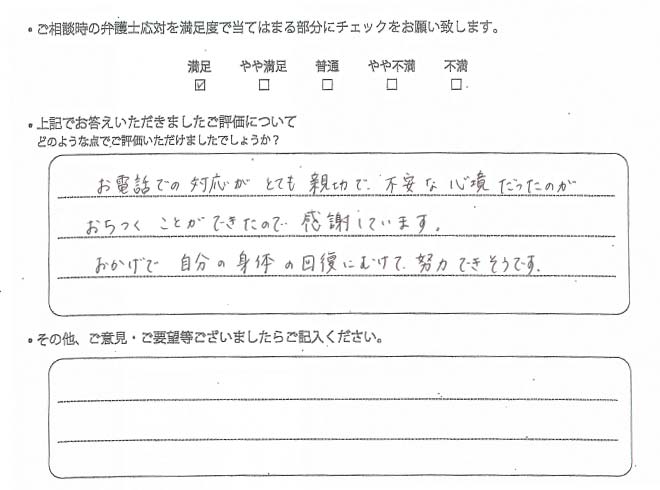 ・ご相談時の弁護士応対を満足度で当てはまる部分にチェックをお願い致します。
満足 やや満足 普通 やや不満 不満
☑ ☐ ☐ ☐ ☐
・上記でお答えいただきましたご評価について
どのような点でご評価いただけましたでしょうか？
お電話での対応がとても親切で、不安な心境だったのが
おちつくことができたので感謝しています。
おかげで自分の身体の回復にむけて努力できそうです。
・その他、ご意見・ご要望等ございましたらご記入ください。